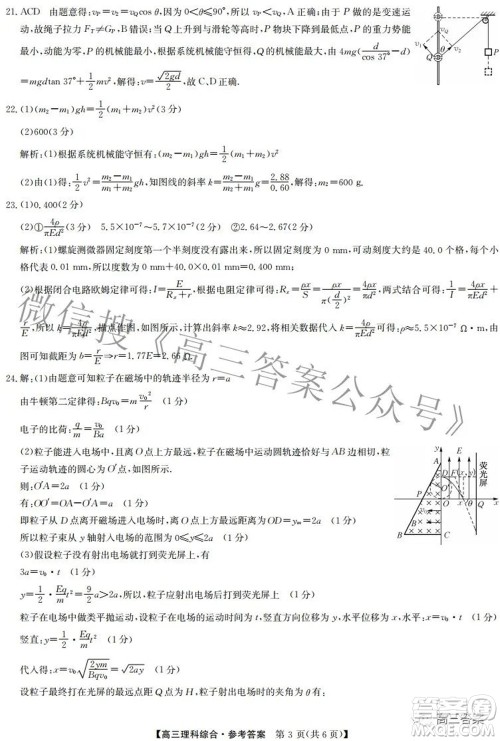 21. ACD 由题意得:vP=v2=vQcosθ,因为0<θ≤90°,所以vP<vQ,A正确;由于P做的是变速运
动,故绳子拉力FT≠GP,B错误;当Q上升到与滑轮等高时,P物块下降到最低点,P的重力势能
最小,动能为零,P的机械能最小,根据系统机械能守恒可知,Q的机械能最大,由4mg(d/cos 37°-d)
=mgdtan 37°+1/2mv²,解得:v=√2gd/2,故C、D正确.
22. (1)(m2-m1)gh=1/2(m1+m2)v²(3分)
(2)600(3分)
解析:(1)根据系统机械能守恒有:(m2-m1)gh=1/2(m1+m2)v²
(2)由(1)得:1/2v²=(m2-m1)/(m1+m2)gh,知图线的斜率k=(m2-m1)/(m1+m2)g=2.88/0.60,解得:m2=600 g.
23. (1)0.400(2分)
(2)①4ρ/πEd²(3分) 5.5×10⁻⁷~5.7×10⁻⁷(2分) ②2.64~2.67(2分)
解析:(1)螺旋测微器固定刻度第一个半刻度没有露出来,所以读数为0 mm,可动刻度大约是40.0个格,每个小
格代表0.01 mm,所以度数为0 mm+40.0×0.01 mm=0.400 mm;
(2)根据闭合电路欧姆定律可得:I=E/(Rx+r),根据电阻定律可得:Rx=ρx/S=ρx/π(d/2)²=4ρx/πd²,两式结合可得:1/I=4ρx/πEd²+
r/E,所以k=4ρ/πEd²,描点作图,如图所示,计算出斜率k≈2.92,将相关数据代入可得:ρ≈5.5×10⁻⁷ Ω·m,由
图可知截距为b=r/E⇒r=1.77E=2.66 Ω.
24. 解:(1)由题意可知粒子在磁场中的轨迹半径为r=a
由牛顿第二定律得:Bqv0=mv0²/r (1分)
电子的比荷:q/m=v0/Ba (1分)
(2)粒子能进入电场中,且离O点上方最远,粒子在磁场中运动轨迹圆恰好与AB边相切,粒
子运动轨迹的圆心为O′点,如图所示.
则:O′A=2a (1分)
有:OO′=OA-O′A=a (1分)
即粒子从D点离开磁场进入电场时,离O点上方最远距离OD=ym=2a (1分)
所以粒子束从y轴射入电场的范围为0≤y≤2a (1分)
(3)假设粒子没有射出电场就打到荧光屏上,有
3a=v0·t (1分)
y=1/2·Eq/m t²=9/2a>2a,所以,粒子应射出电场后打到荧光屏上 (1分)
粒子在电场中做类平抛运动,设粒子在电场中的运动时间为t,竖直方向位移为y,水平位移为x,水平:x=v0·t (1分)
竖直:y=1/2·Eq/m t² (1分)
代入得:x=v0√(2ym/Bqv0)=√2ay (1分)
设粒子最终打在光屏的最远点距Q点为H,粒子射出电场时的夹角为θ有:
【高三理科综合·参考答案 第 3 页(共 6 页)】
微信搜《高三答案公众号》
高三答案